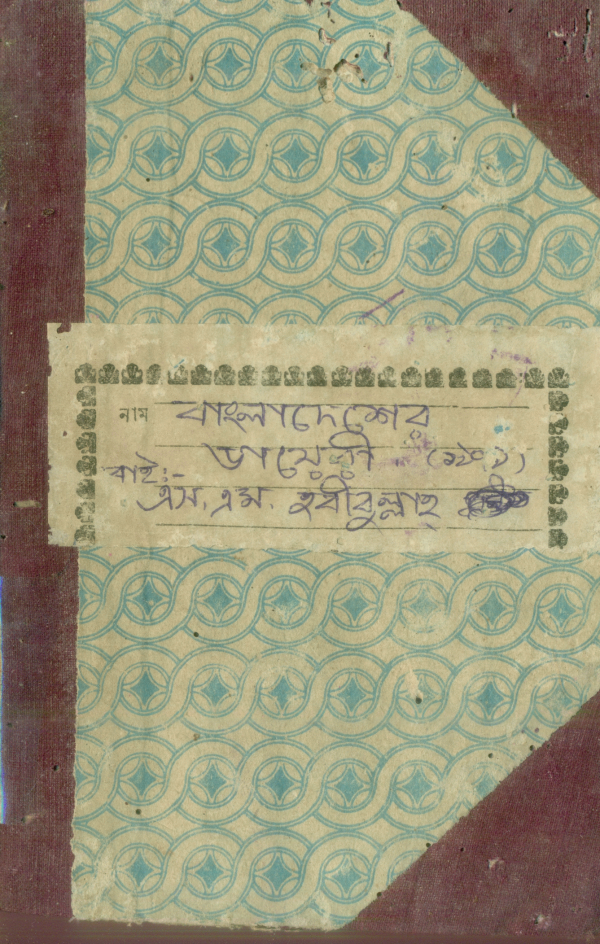 নাম বাংলাদেশের
ডায়েরী (১৯৭১)
বাই:-
এস, এম. হবীবুল্লাহ্